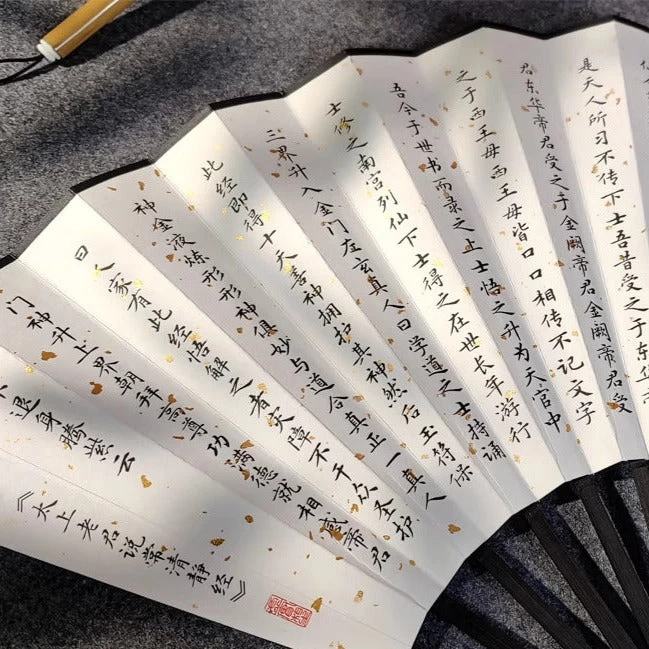 是天人所习不传下士吾昔受之于东华
君东华帝君受之于金阙帝君金阙帝君受
之于西王母西王母皆口口相传不记文字
吾今于世书而录之上士悟之升为天官中
士修之南宫列仙下士得之在世长年游行
三界升入金门左玄真人曰学道之士持诵
此经即得十天善神拥护其神然后玉符保
神金液炼形形神俱妙与道合真正一真人
曰人家有此经悟解之者灾障不干众圣护
门神升上界朝拜高尊功满德就相感帝君
不退身腾紫云
《太上老君说常清静经》